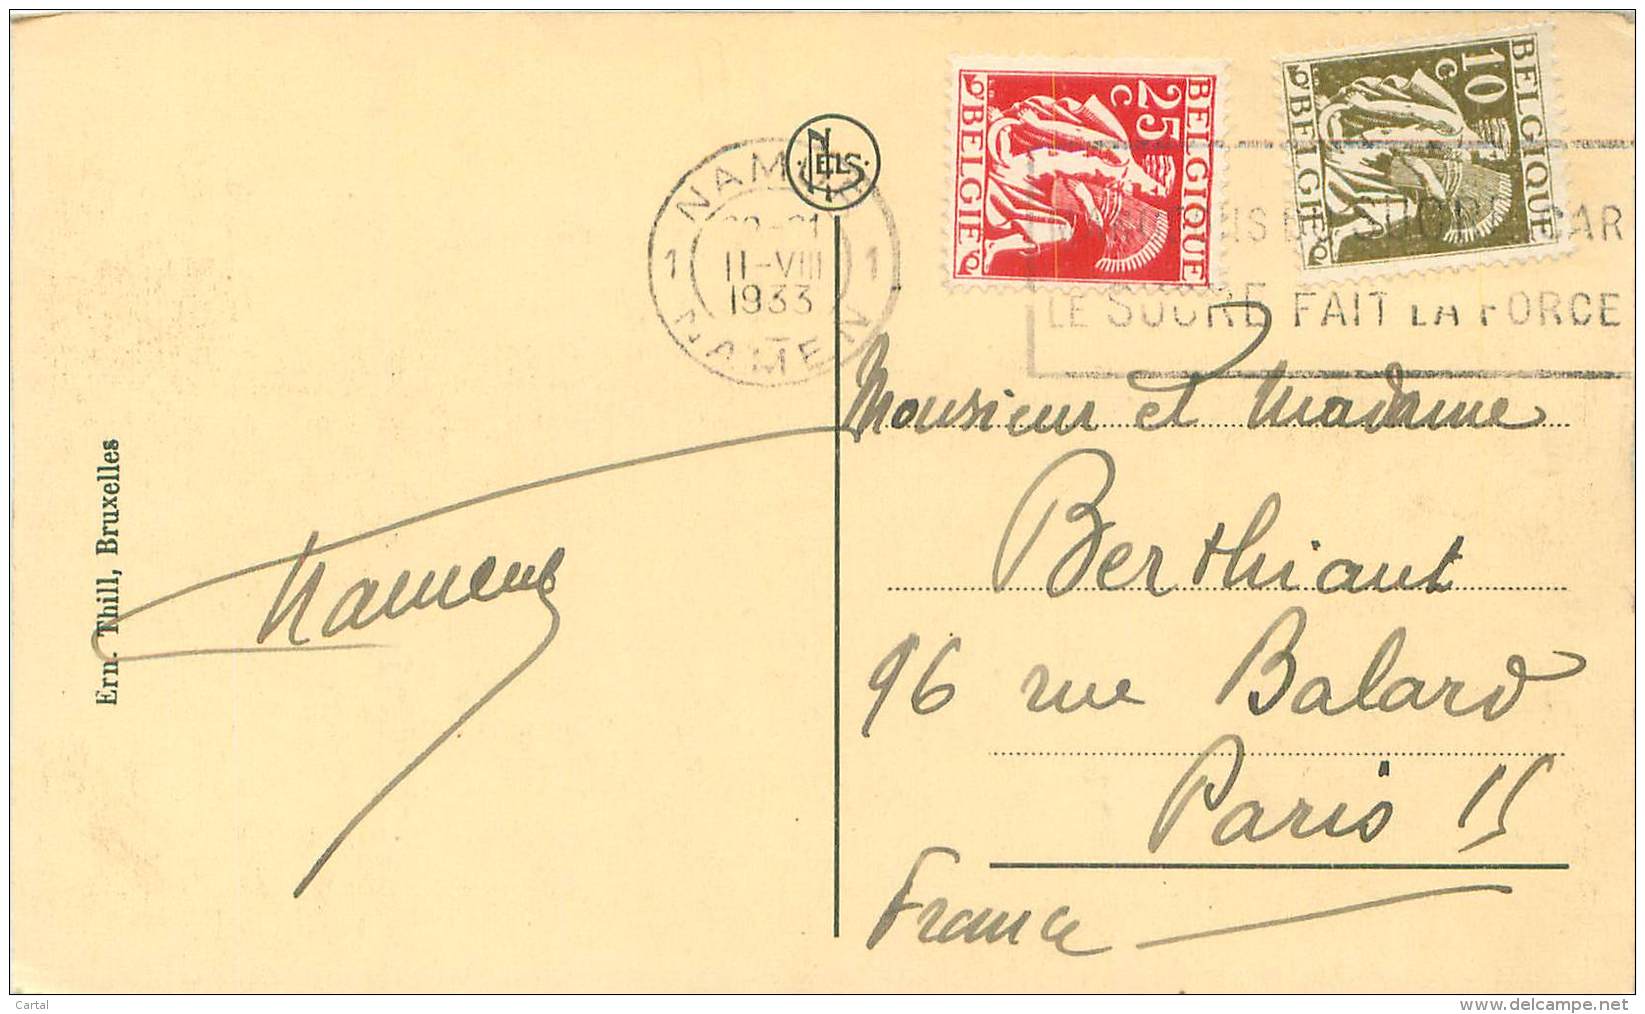 BELGIQUE
25 c
BELGIE
BELGIQUE
10 c
BELGIE
NELS
NAMUR
1 1
II-VIII
1933
NAMEN
SUCRE CAR
LE SUCRE FAIT LA FORCE
Monsieur et Madame
Berthiaut
96 rue Balard
Paris 15
France
Ern. Thill, Bruxelles
Cartal
www.delcampe.net